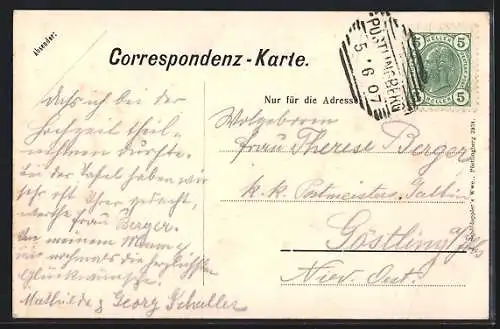 Absender:
Correspondenz-Karte.
Nur für die Adresse
PÖSTLINGBERG
5 6 07
5 HELLER 5
5 HELLER 5
Dass ich bei der
Hochzeit theil-
nehmen durfte.
bei der Tafel haben wir
sehr oft Ihrer gedacht,
werthe Frau Berger.
Von meinem Manne &
mir nochmals die herzlichsten
Glückwünsche.
Mathilde & Georg Schaller
Wolgeboren
Frau Therese Berger
k. k. Postmeisters Gattin
Göstling a/Ybbs
Nied. Oest.
Wwe., Pöstlingberg